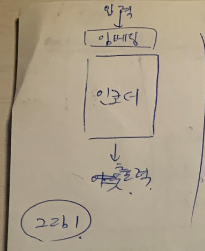 입력
임베딩
인코더
출력
그림 1